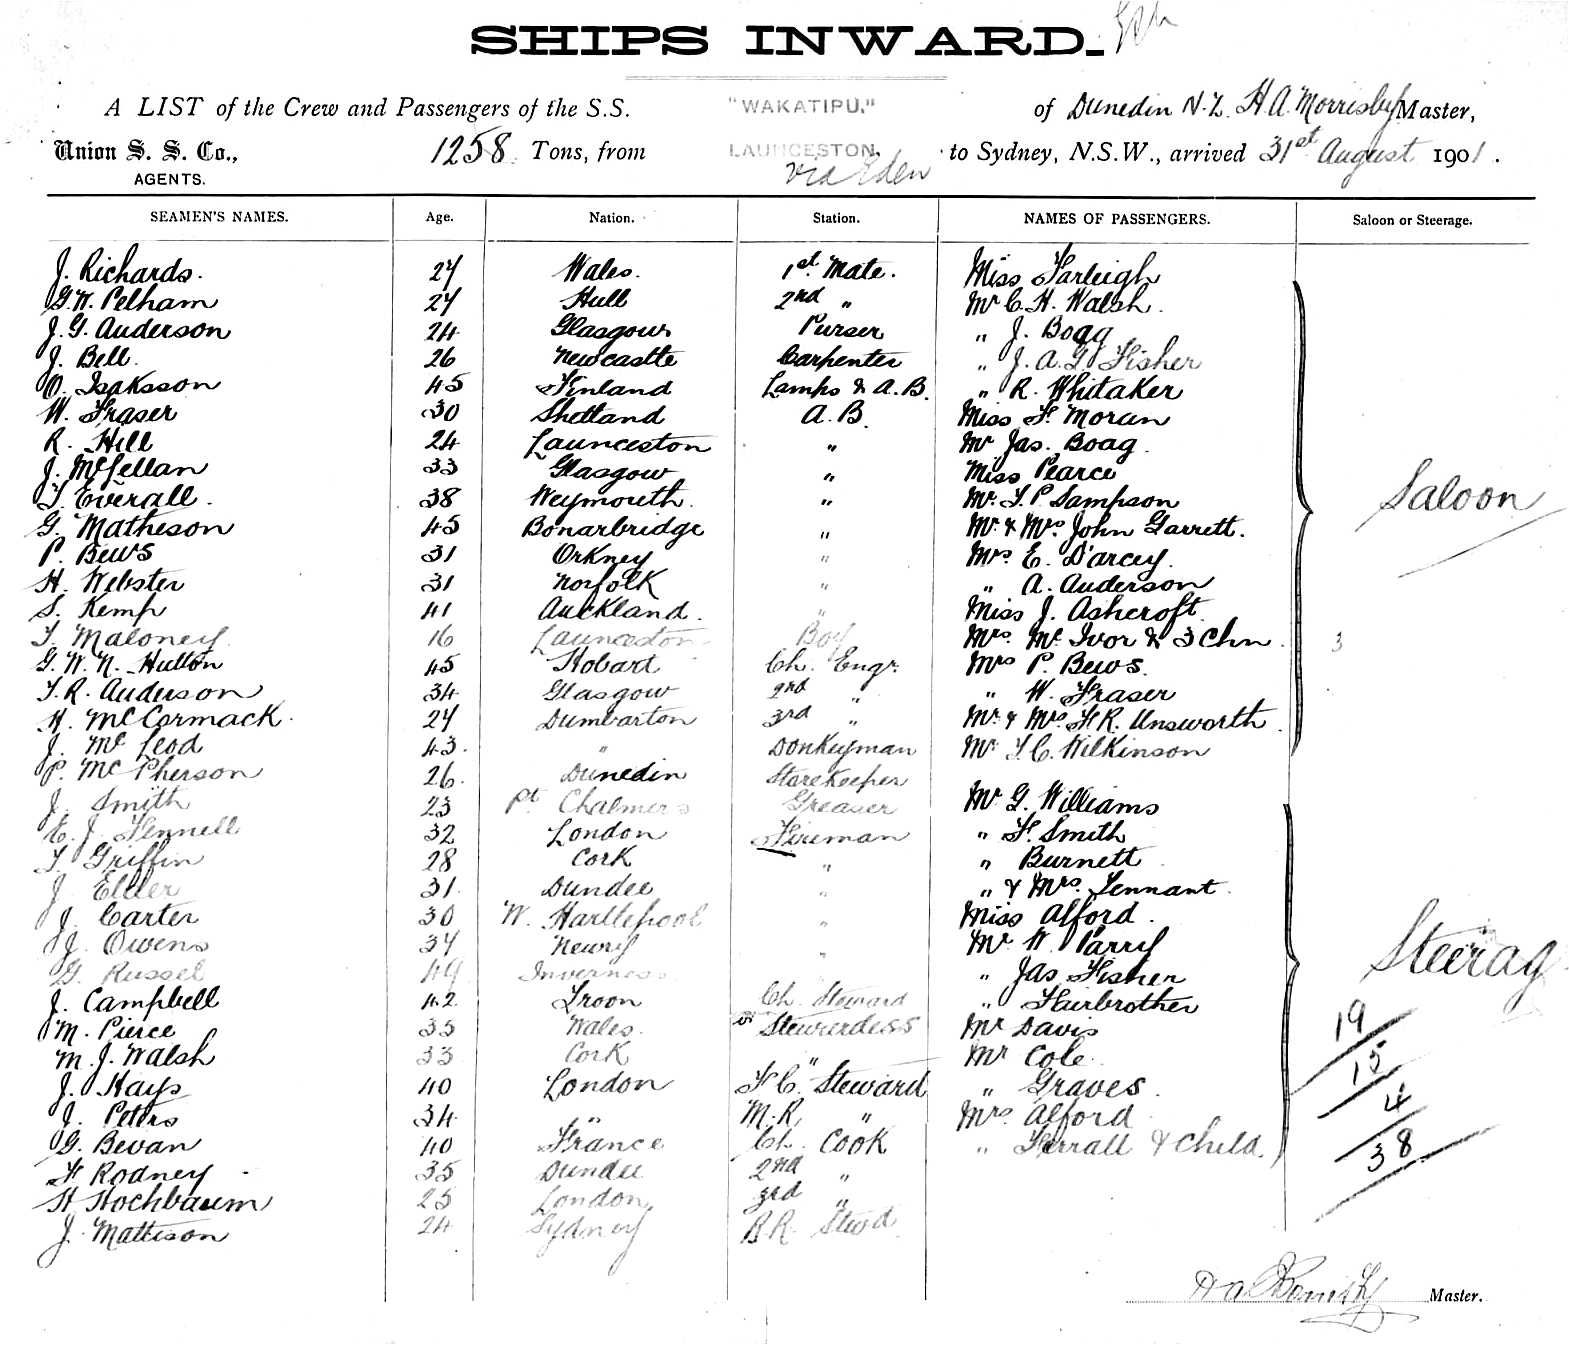 SHIPS INWARD.
A LIST of the Crew and Passengers of the S.S. "WAKATIPU." of Dunedin N.Z. H.A. Morrisby Master,
Union S. S. Co., 1258 Tons, from LAUNCESTON. via Eden to Sydney, N.S.W., arrived 31st August 1901.
AGENTS.
SEAMEN'S NAMES. Age. Nation. Station. NAMES OF PASSENGERS. Saloon or Steerage.
J. Richards. 27 Wales. 1st Mate. Miss Farleigh
G.W. Pelham 27 Hull 2nd " Mr C.H. Walsh.
J.G. Anderson 24 Glasgow Purser " J. Boag
J. Bell. 26 Newcastle Carpenter " J.A.G. Fisher
O. Isaksson 45 Finland Lamps & A.B. " R. Whitaker
W. Fraser 30 Shetland A.B. Miss F. Moran
R. Hill 24 Launceston " Mr Jas. Boag
J. McLellan 33 Glasgow " Miss Pearce
T. Everall. 38 Weymouth. " Mr. T.P. Sampson
G. Matheson 45 Bonarbridge " Mr. & Mrs. John Garrett.
P. Bews 31 Orkney " Mrs E. D'arcy.
H. Webster 31 Norfolk " " A. Anderson
S. Kemp 41 Auckland. " Miss J. Ashcroft
T. Maloney 16 Launceston Boy Mrs. McIvor & 3 Chn. 3
G.W.N. Hutton 45 Hobart Ch. Engr. Mrs P. Bews.
T.R. Anderson 34 Glasgow 2nd " " W. Fraser
H. McCormack. 27 Dumbarton 3rd " Mr. & Mrs. F.R. Unsworth.
J. McLeod 43. " Donkeyman Mr T.C. Wilkinson
Saloon
P. McPherson 26. Dunedin Storekeeper
J. Smith 23 Pt Chalmers Greaser Mr G. Williams
E.J. Fennell 32 London Fireman " F. Smith
T. Griffin 28 Cork " " Burnett
J. Elder 31. Dundee " " & Mrs. Tennant.
J. Carter 30 W. Hartlepool " Miss Alford.
J. Owens 37 Newry " Mr W. Parry
G. Russel 49 Inverness " Jas Fisher
J. Campbell 42. Troon Ch. Steward " Fairbrother
M. Pierce 35 Wales. Stewardess Mr Davis
M.J. Walsh 33 Cork " Mr Cole.
J. Hays 40 London F.C. Steward " Graves.
J. Peters 34 " M.R. " Mrs Alford
G. Bevan 40 France Ch. Cook " Ferrall & Child.
F. Rodney 35 Dundee 2nd "
H Hochbaum 25 London 3rd "
J. Mattison 24 Sydney B.R. Stewd.
Steerag
19
15
4
38
Master.